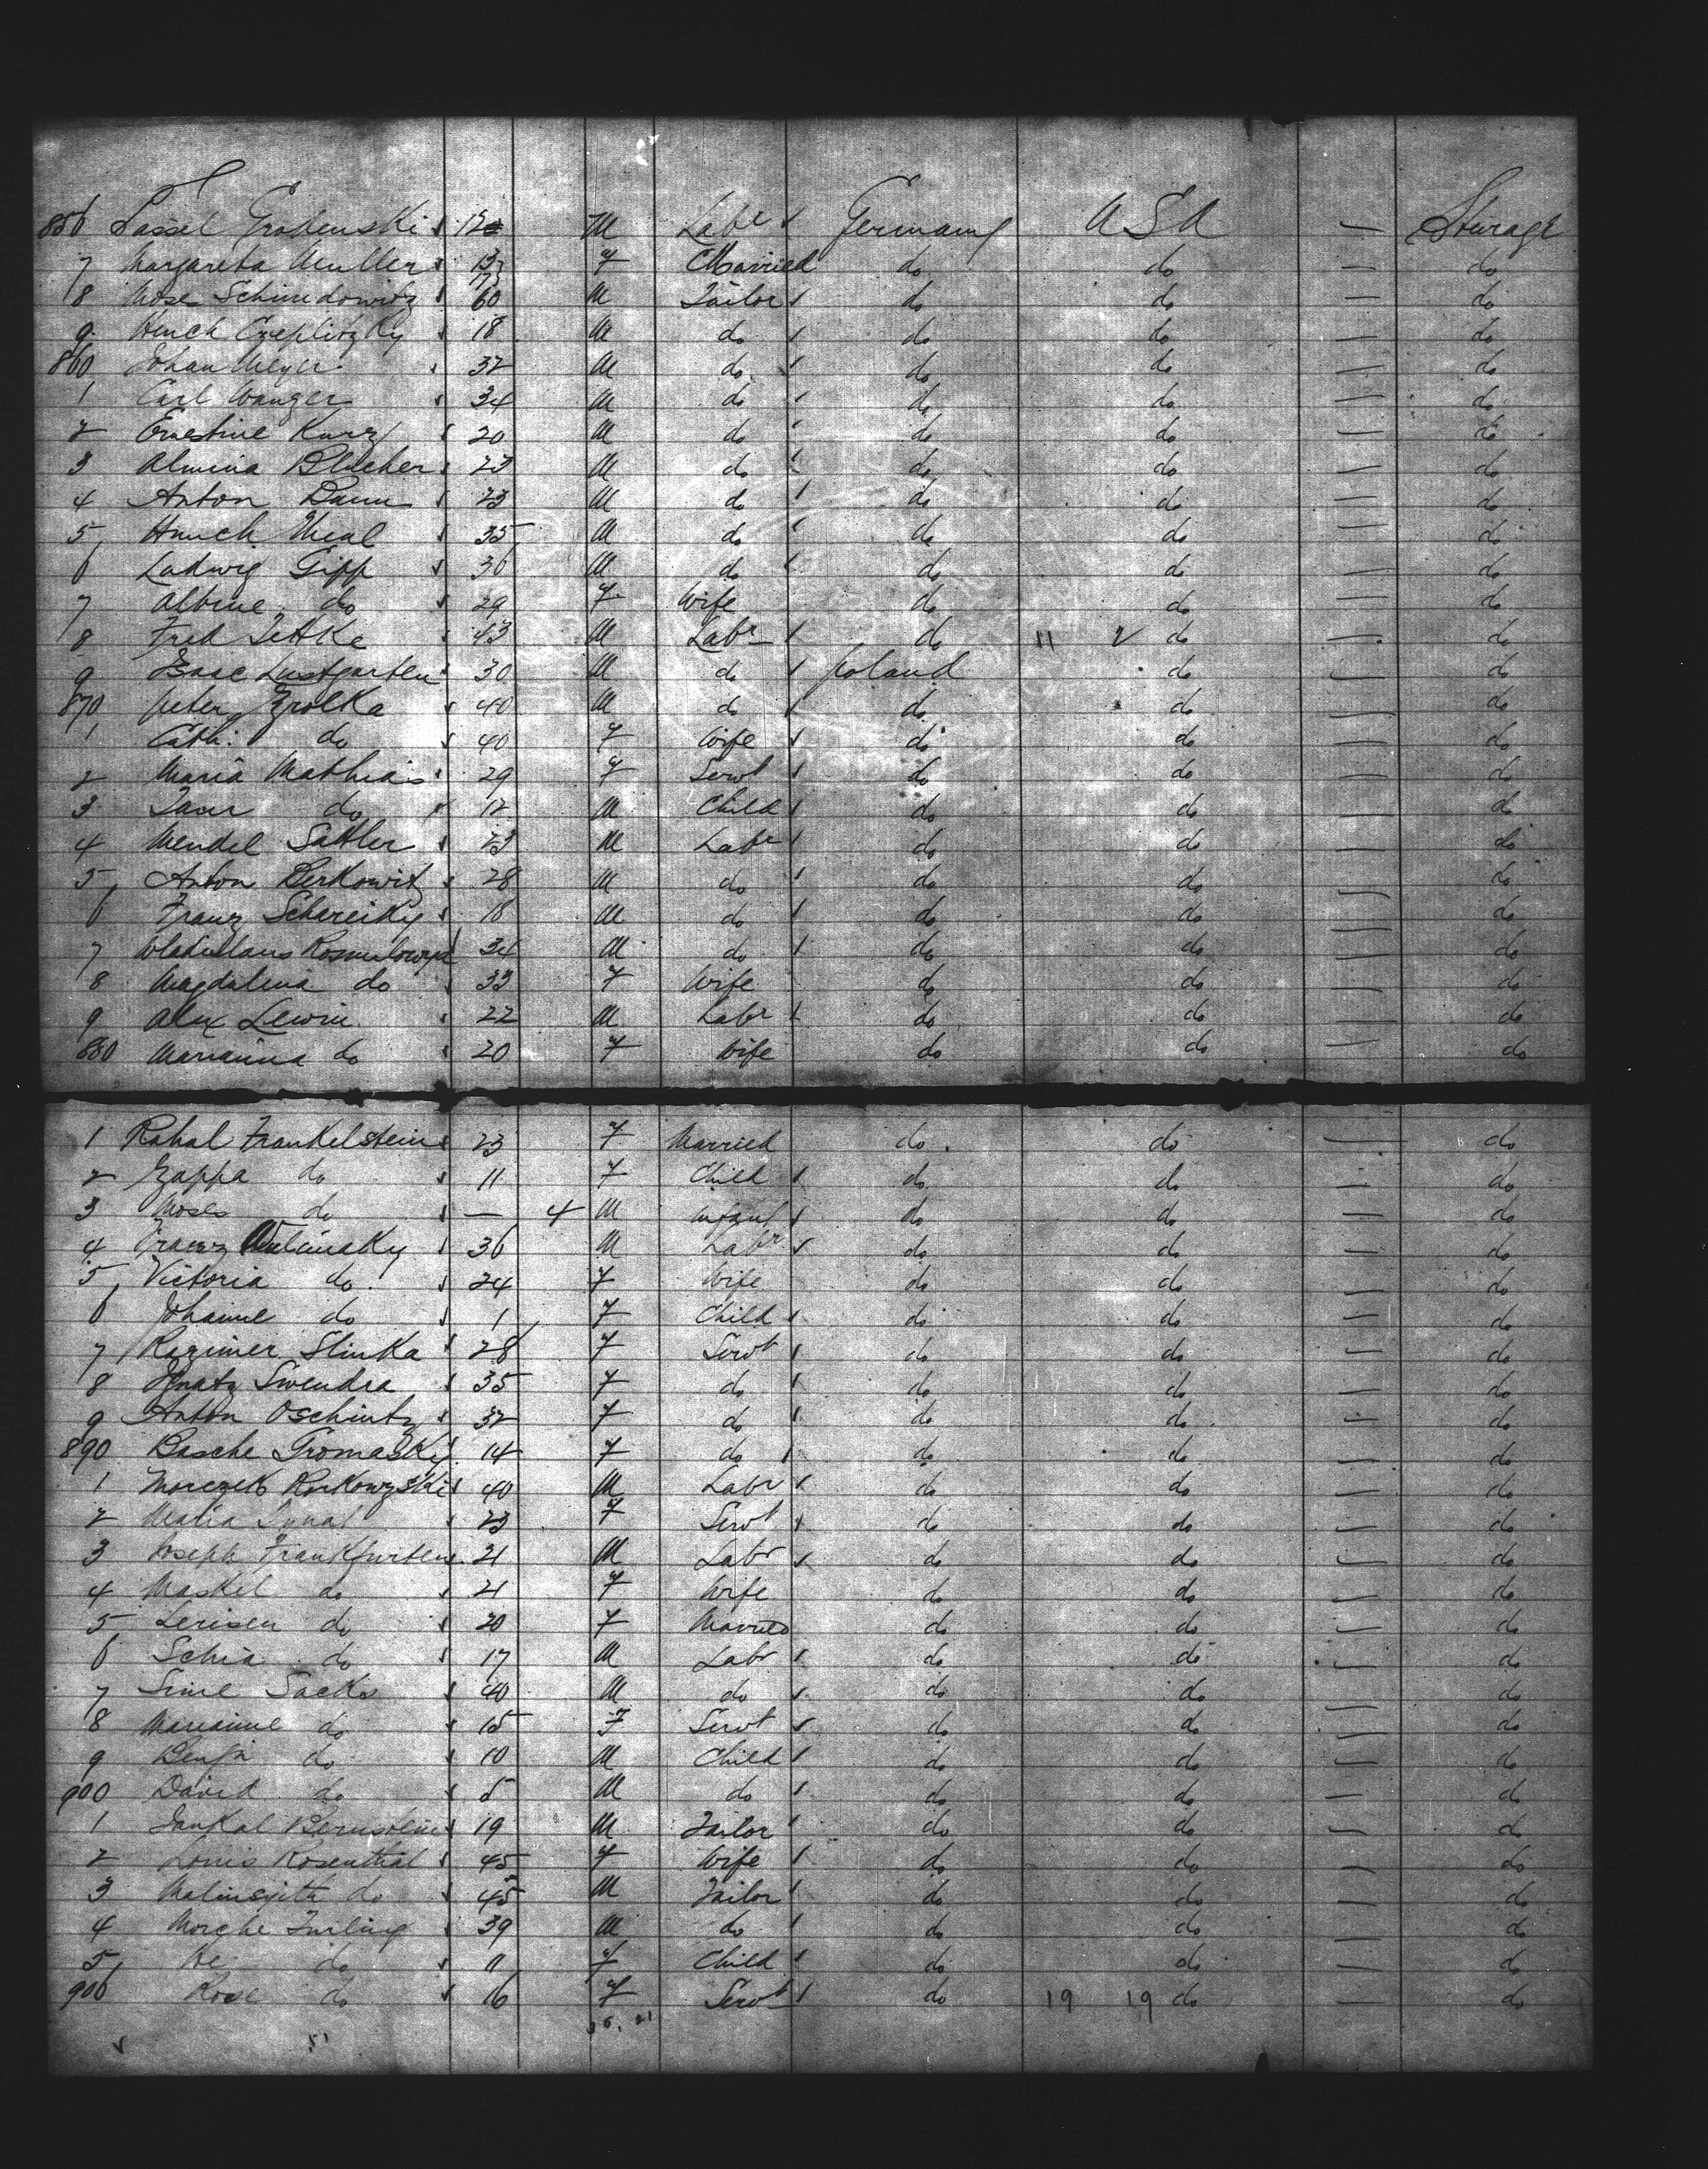 856 Sassel Grodenski 12 M Labr Germany USA — Steerage
7 Margareta Muller 13 F Married do do — do
8 Mose Schimdowitz 60 M Tailor do do — do
9 Hench 18 M do do do — do
860 Johan Meyer 32 M do do do — do
1 Carl Wanger 34 M do do do — do
2 Ernestine Kurz 20 M do do do — do
3 Almina Blucher 23 M do do do — do
4 Anton Baum 23 M do do do — do
5 35 M do do do — do
6 Ludwig Gipp 36 M do do do — do
7 Albine do 29 F Wife do do — do
8 Fred Tettke 43 M Labr do 11 2 do — do
9 Isaac Lustgarten 30 M do Poland do — do
870 Peter Zrolka 40 M do do do — do
1 Cath: do 40 F Wife do do — do
2 Maria Mathias 29 F Servt do do — do
3 do 12 M Child do do — do
4 Mendel Sattler 23 M Labr do do — do
5 Anton Berkowitz 28 M do do do — do
6 Franz 18 M do do do — do
7 34 M do do do — do
8 Magdalena do 33 F Wife do do — do
9 Alex Lewin 22 M Labr do do — do
880 Marianna do 20 F Wife do do — do
1 Rahal Frankelstein 23 F Married do do — do
2 Zappa do 11 F Child do do — do
3 Moses do — 4 M Infant do do — do
4 Franz 36 M Labr do do — do
5 Victoria do 24 F Wife do do — do
6 Johanne do 1 F Child do do — do
7 Kazimer Slinka 28 F Servt do do — do
8 Ignatz Swendra 35 F do do do — do
9 Anton Oschintz 32 F do do do — do
890 Basche Gromasky 14 F do do do — do
1 Morczek Rorkowzski 40 M Labr do do — do
2 Maria 23 F Servt do do — do
3 Joseph Frankfurten 21 M Labr do do — do
4 Maskel do 21 F Wife do do — do
5 Lerisen do 20 F Married do do — do
6 Schia do 17 M Labr do do — do
7 Sime Sacks 40 M do do do — do
8 Marianne do 15 F Servt do do — do
9 Benja do 10 M Child do do — do
900 David do 5 M do do do — do
1 Jankal Bernstein 19 M Tailor do do — do
2 Louis Rosenthal 45 F Wife do do — do
3 do 45 M Tailor do do — do
4 Morche 39 M do do do — do
5 do F Child do do — do
906 Rose do 16 F Servt do 19 19 do — do
51